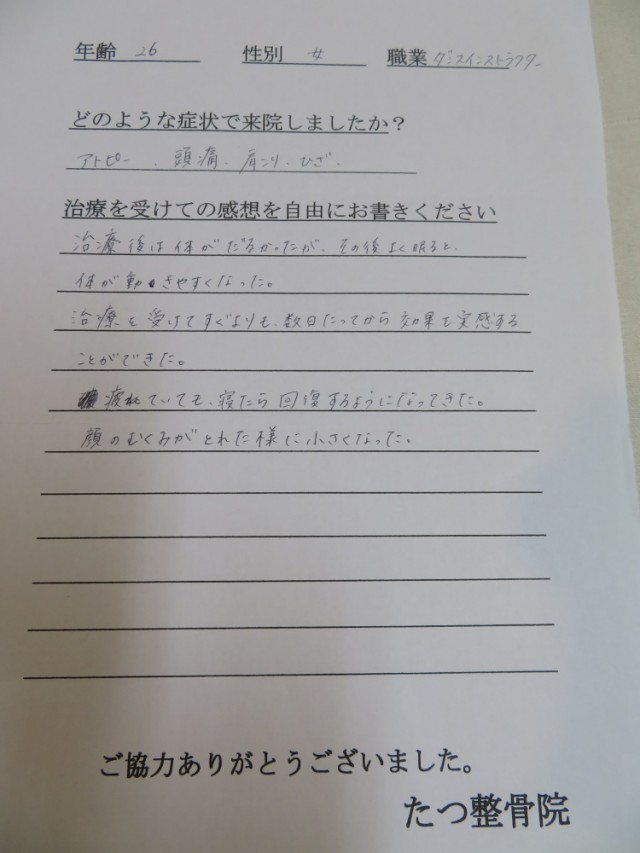 年齢 26 性別 女 職業 ダンスインストラクター
どのような症状で来院しましたか？
アトピー、頭痛、肩こり、ひざ、
治療を受けての感想を自由にお書きください
治療後は体がだるかったが、その後よく眠ると、
体が動きやすくなった。
治療を受けてすぐよりも、数日たってから効果を実感する
ことができた。
疲れていても、寝たら回復するようになってきた。
顔のむくみがとれた様に小さくなった。
ご協力ありがとうございました。
たつ整骨院